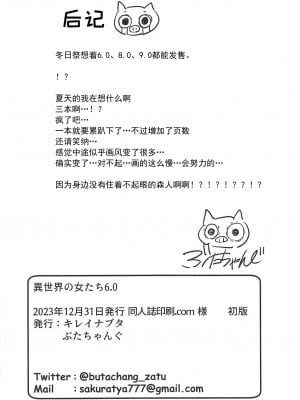 后记
冬日祭想着6.0、8.0、9.0都能发售。
！？
夏天的我在想什么啊
三本啊…！？
疯了吧…
一本就要累趴下了…不过增加了页数
还请笑纳…
感觉中途似乎画风变了很多…
确实变了…对不起…画的这么慢…会努力的…
因为身边没有住着不起眼的森人啊啊！？！？！？！？！？
異世界の女たち6.0
2023年12月31日発行 同人誌印刷.com 様 初版
発行：キレイナブタ
ぶたちゃんぐ
Twitter：@butachang_zatu
Mail ：sakuratya777@gmail.com